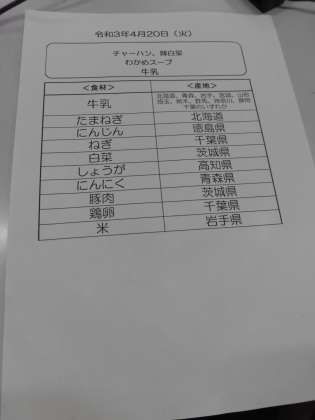 令和3年4月20日（火）
チャーハン、辣白菜
わかめスープ
牛乳
＜食材＞ ＜産地＞
牛乳 北海道、青森、岩手、宮城、山形
埼玉、栃木、群馬、神奈川、静岡
千葉のいずれか
たまねぎ 北海道
にんじん 徳島県
ねぎ 千葉県
白菜 茨城県
しょうが 高知県
にんにく 青森県
豚肉 茨城県
鶏卵 千葉県
米 岩手県